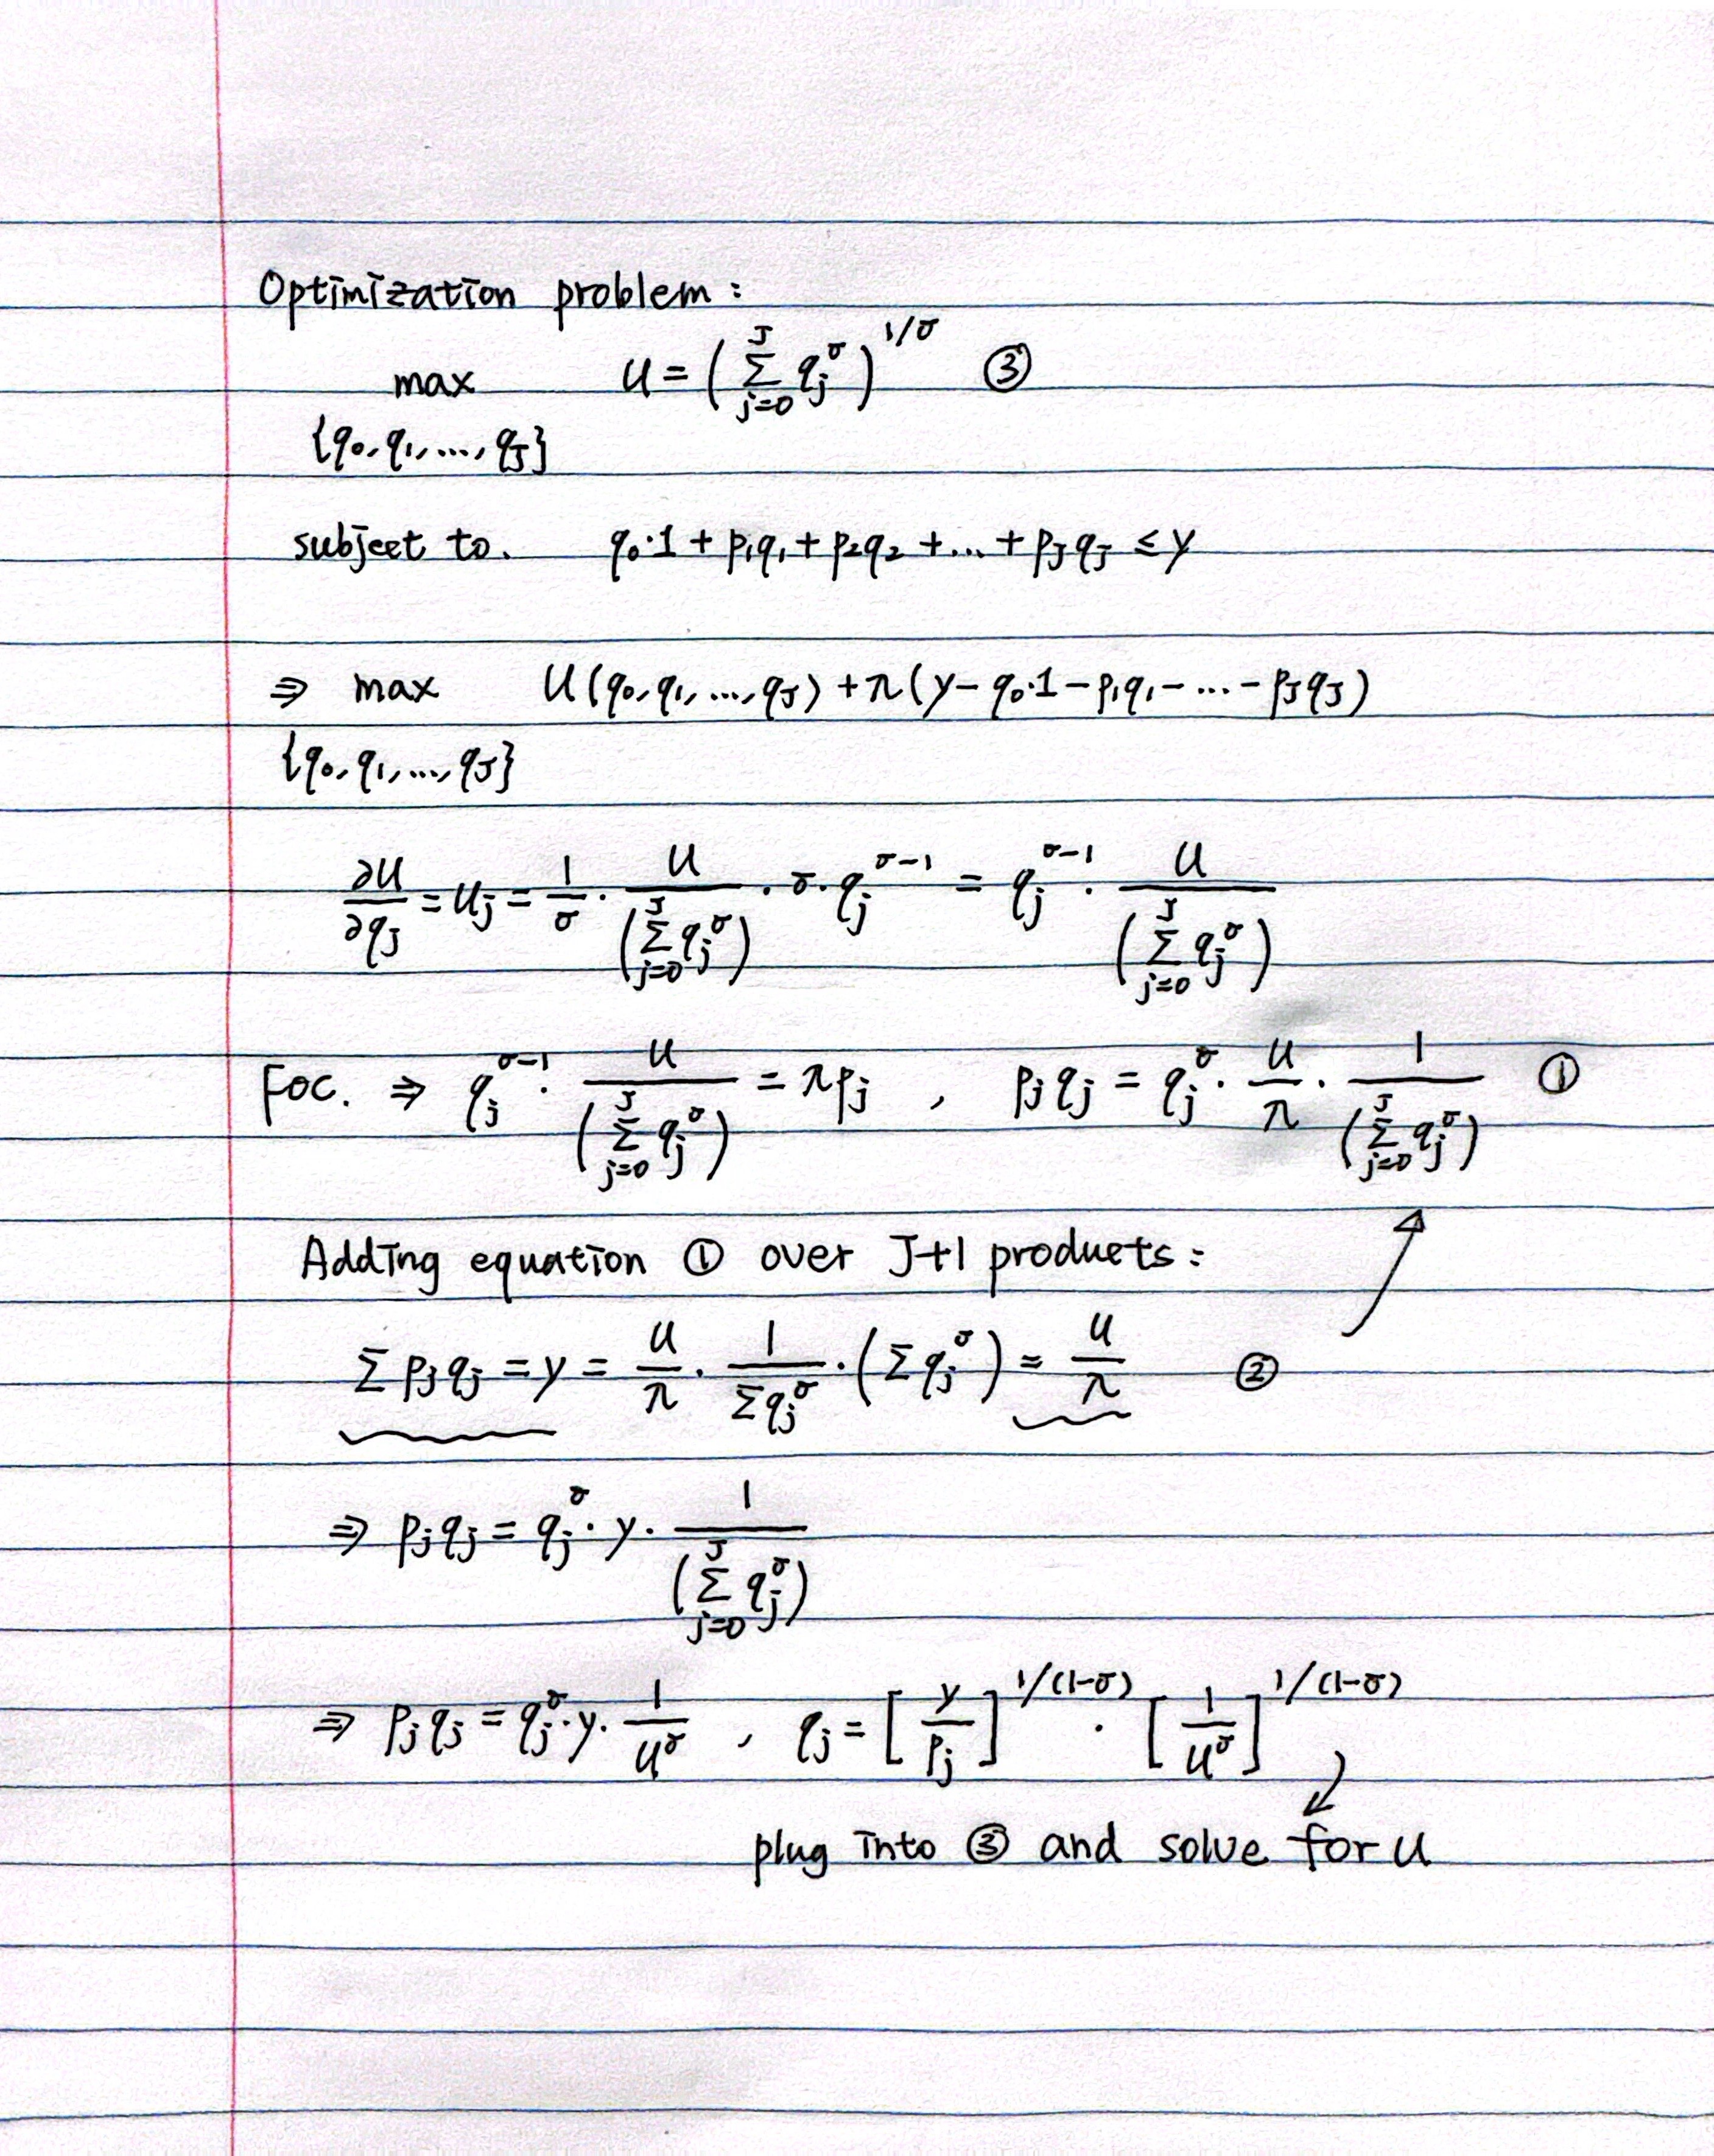 Optimization problem:
max U = ( Σ_{j=0}^{J} q_j^σ )^{1/σ} ③
{q_0, q_1, ..., q_J}
subject to. q_0·1 + p_1q_1 + p_2q_2 + ... + p_Jq_J ≤ y
⇒ max U(q_0, q_1, ..., q_J) + λ(y − q_0·1 − p_1q_1 − ... − p_Jq_J)
{q_0, q_1, ..., q_J}
∂U/∂q_j = U_j = 1/σ · U/( Σ_{j=0}^{J} q_j^σ ) · σ · q_j^{σ−1} = q_j^{σ−1} · U/( Σ_{j=0}^{J} q_j^σ )
FOC. ⇒ q_j^{σ−1} · U/( Σ_{j=0}^{J} q_j^σ ) = λp_j , p_jq_j = q_j^σ · U/λ · 1/( Σ_{j=0}^{J} q_j^σ ) ①
Adding equation ① over J+1 products:
Σ p_jq_j = y = U/λ · 1/Σq_j^σ · ( Σ q_j^σ ) = U/λ ②
⇒ p_jq_j = q_j^σ · y · 1/( Σ_{j=0}^{J} q_j^σ )
⇒ p_jq_j = q_j^σ · y · 1/U^σ , q_j = [ y/p_j ]^{1/(1−σ)} · [ 1/U^σ ]^{1/(1−σ)}
plug into ③ and solve for U